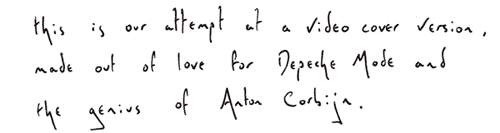 this is our attempt at a video cover version,
made out of love for Depeche Mode and
the genius of Anton Corbijn.